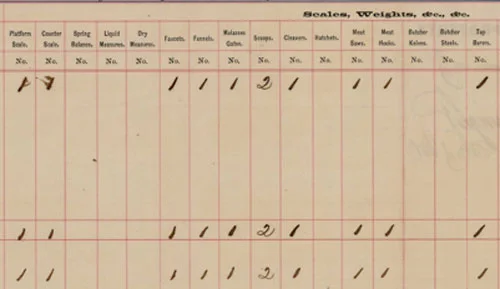 Scales, Weights, &c., &c.
Platform Scale. Counter Scale. Spring Balance. Liquid Measures. Dry Measures. Faucets. Funnels. Molasses Gates. Scoops. Cleavers. Hatchets. Meat Saws. Meat Hooks. Butcher Knives. Butcher Steels. Tap Borers.
No. No. No. No. No. No. No. No. No. No. No. No. No. No. No. No.
1 1 1 1 1 2 1 1 1 1
1 1 1 1 1 2 1 1 1 1
1 1 1 1 1 2 1 1 1 1